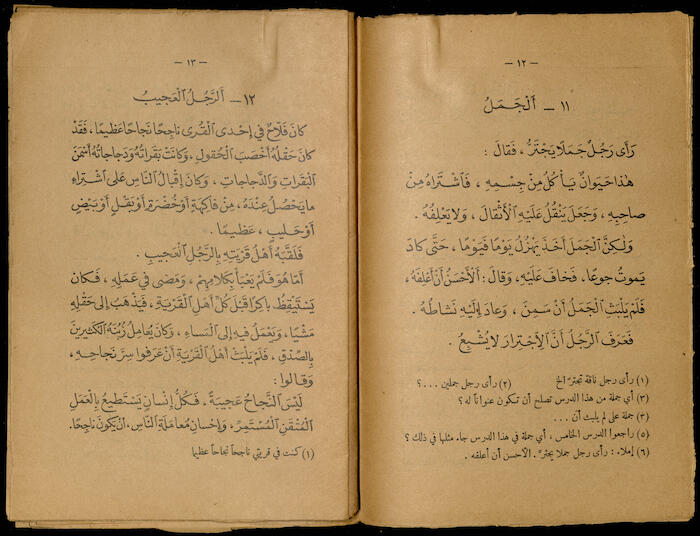 — ١٢ —
١١ ـ اَلْجَمَلُ
رَأى رَجُلٌ جَمَلًا يَجْتَرُّ ، فَقالَ :
هٰذا حَيَوانٌ يَأْكُلُ مِنْ جِسْمِهِ ، فَاَشْتَراهُ مِنْ
صاحِبِهِ ، وَجَعَلَ يَنْقُلُ عَلَيْهِ الْأَثْقالَ ، وَلا يَعْلِفُهُ .
وَلٰكِنَّ الْجَمَلَ أَخَذَ يَهْزُلُ يَوْمًا فَيَوْمًا ، حَتّى كادَ
يَموتُ جوعًا ، فَخافَ عَلَيْهِ ، وَقالَ : اَلْأَحْسَنُ أَنْ أَعْلِفَهُ ،
فَلَمْ يَلْبَثِ الْجَمَلُ أَنْ سَمِنَ ، وَعادَ إِلَيْهِ نَشاطُهُ .
فَعَرَفَ الرَّجُلُ أَنَّ الْاِجْتِرارَ لا يُشْبِعُ .
(١) رأى رجل ناقة تجترّ الخ (٢) رأى رجل جملين . . . ؟
(٣) أي جملة من هذا الدرس تصلح أن تكون عنواناً له ؟
(٣) جملة على لم يلبث أن ...
(٥) راجعوا الدرس الخامس ، أي جملة في هذا الدرس جاء مثلها في ذلك ؟
(٦) إملاء : رأى رجل جملا يجترّ . الأحسن أن أعلفه .
— ١٣ —
١٢ ـ اَلرَّجُلُ الْعَجيبُ
كانَ فَلّاحٌ في إِحْدى الْقُرى ناجِحًا نَجاحًا عَظيمًا ، فَقَدْ
كانَ حَقْلُهُ أَخْصَبَ الْحُقولِ ، وَكانَتْ بَقَراتُهُ وَدَجاجاتُهُ أَسْمَنَ
الْبَقَراتِ وَالدَّجاجاتِ ، وَكانَ إِقْبالُ النّاسِ عَلى اَشْتِراءِ
ما يَحْصُلُ عِنْدَهُ ، مِنْ فاكِهَةٍ أَوْ خُضْرَةٍ أَوْ بَقْلٍ أَوْ بَيْضٍ
أَوْ حَليبٍ ، عَظيمًا .
فَلَقَّبَهُ أَهْلُ قَرْيَتِهِ بِالرَّجُلِ الْعَجيبِ .
أَمّا هُوَ فَلَمْ يَعْبَأْ بِكَلامِهِمْ ، وَمَضى في عَمَلِهِ ، فَكانَ
يَسْتَيْقِظُ باكِرًا قَبْلَ كُلِّ أَهْلِ الْقَرْيَةِ ، فَيَذْهَبُ إِلى حَقْلِهِ
مَشْيًا ، وَيَعْمَلُ فيهِ إِلى الْمَساءِ ، وَكانَ يُعامِلُ زُبُنَهُ الْكَثيرينَ
بِالصِّدْقِ ، فَلَمْ يَلْبَثْ أَهْلُ الْقَرْيَةِ أَنْ عَرَفوا سِرَّ نَجاحِهِ ،
وَقالوا :
لَيْسَ النَّجاحُ عَجيبَةً ، فَكُلُّ إِنْسانٍ يَسْتَطيعُ بِالْعَمَلِ
الْمُتْقَنِ الْمُسْتَمِرِّ ، وَإِحْسانِ مُعامَلَةِ النّاسِ ، أَنْ يَكونَ ناجِحًا .
(١) كنت في قريتي ناجحاً نجاحاً عظيما